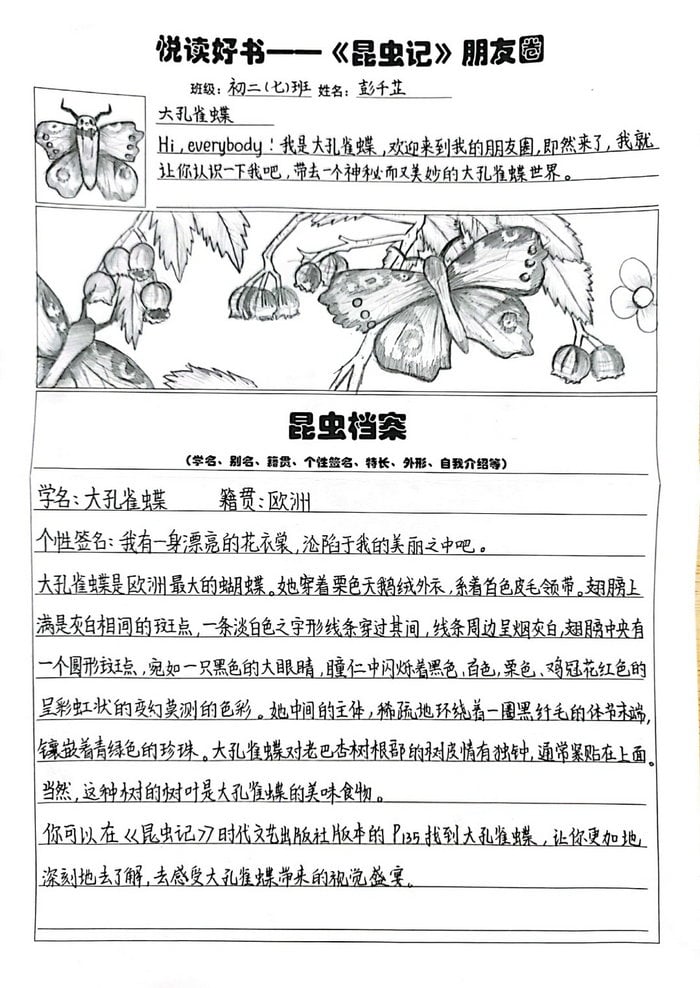 悦读好书——《昆虫记》朋友圈
班级：初二(七)班 姓名：彭千芷
大孔雀蝶
Hi，everybody！我是大孔雀蝶，欢迎来到我的朋友圈，即然来了，我就
让你认识一下我吧，带去一个神秘而又美妙的大孔雀蝶世界。
昆虫档案
（学名、别名、籍贯、个性签名、特长、外形、自我介绍等）
学名：大孔雀蝶 籍贯：欧洲
个性签名：我有一身漂亮的花衣裳，沦陷于我的美丽之中吧。
大孔雀蝶是欧洲最大的蝴蝶。她穿着栗色天鹅绒外衣，系着白色皮毛领带。翅膀上
满是灰白相间的斑点，一条淡白色之字形线条穿过其间，线条周边呈烟灰白，翅膀中央有
一个圆形斑点，宛如一只黑色的大眼睛，瞳仁中闪烁着黑色、白色，栗色、鸡冠花红色的
呈彩虹状的变幻莫测的色彩。她中间的主体，稀疏地环绕着一圈黑纤毛的体节末端，
镶嵌着青绿色的珍珠。大孔雀蝶对老巴杏树根部的树皮情有独钟，通常紧贴在上面。
当然，这种树的树叶是大孔雀蝶的美味食物。
你可以在《昆虫记》时代文艺出版社版本的P135找到大孔雀蝶，让你更加地
深刻地去了解，去感受大孔雀蝶带来的视觉盛宴。